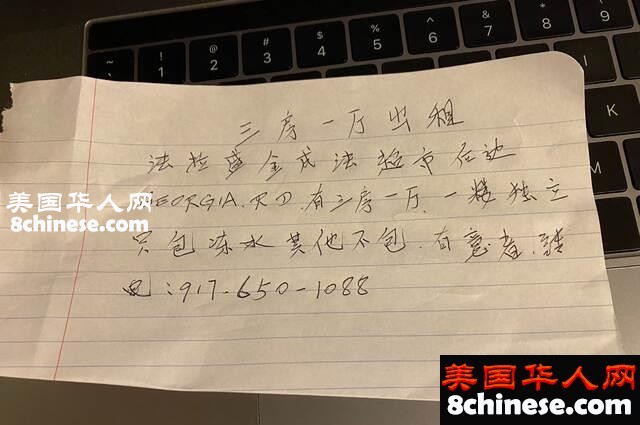 三房一厅出租
法拉盛金成法超市在边
GEORGIA. RD. 有三房一厅. 一楼独立
只包冻水其他不包. 有意者.
电: 917-650-1088
美国华人网
8chinese.com
美国华人网
8chinese.com
~
`
!
1
@
2
#
3
$
4
%
5
^
6
&
7
*
8
(
9
U
I
K
M